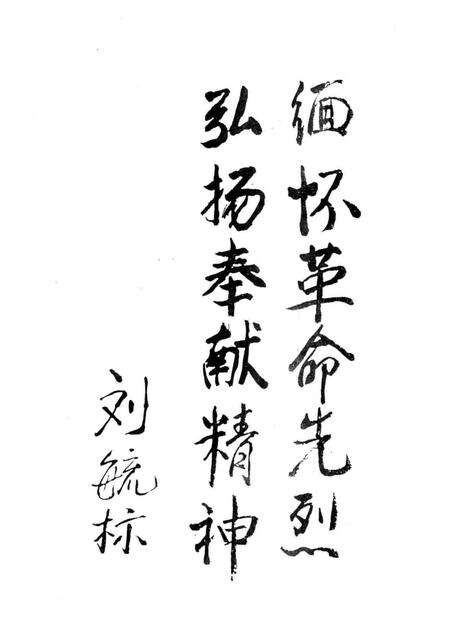 缅怀革命先烈
弘扬奉献精神
刘毓标